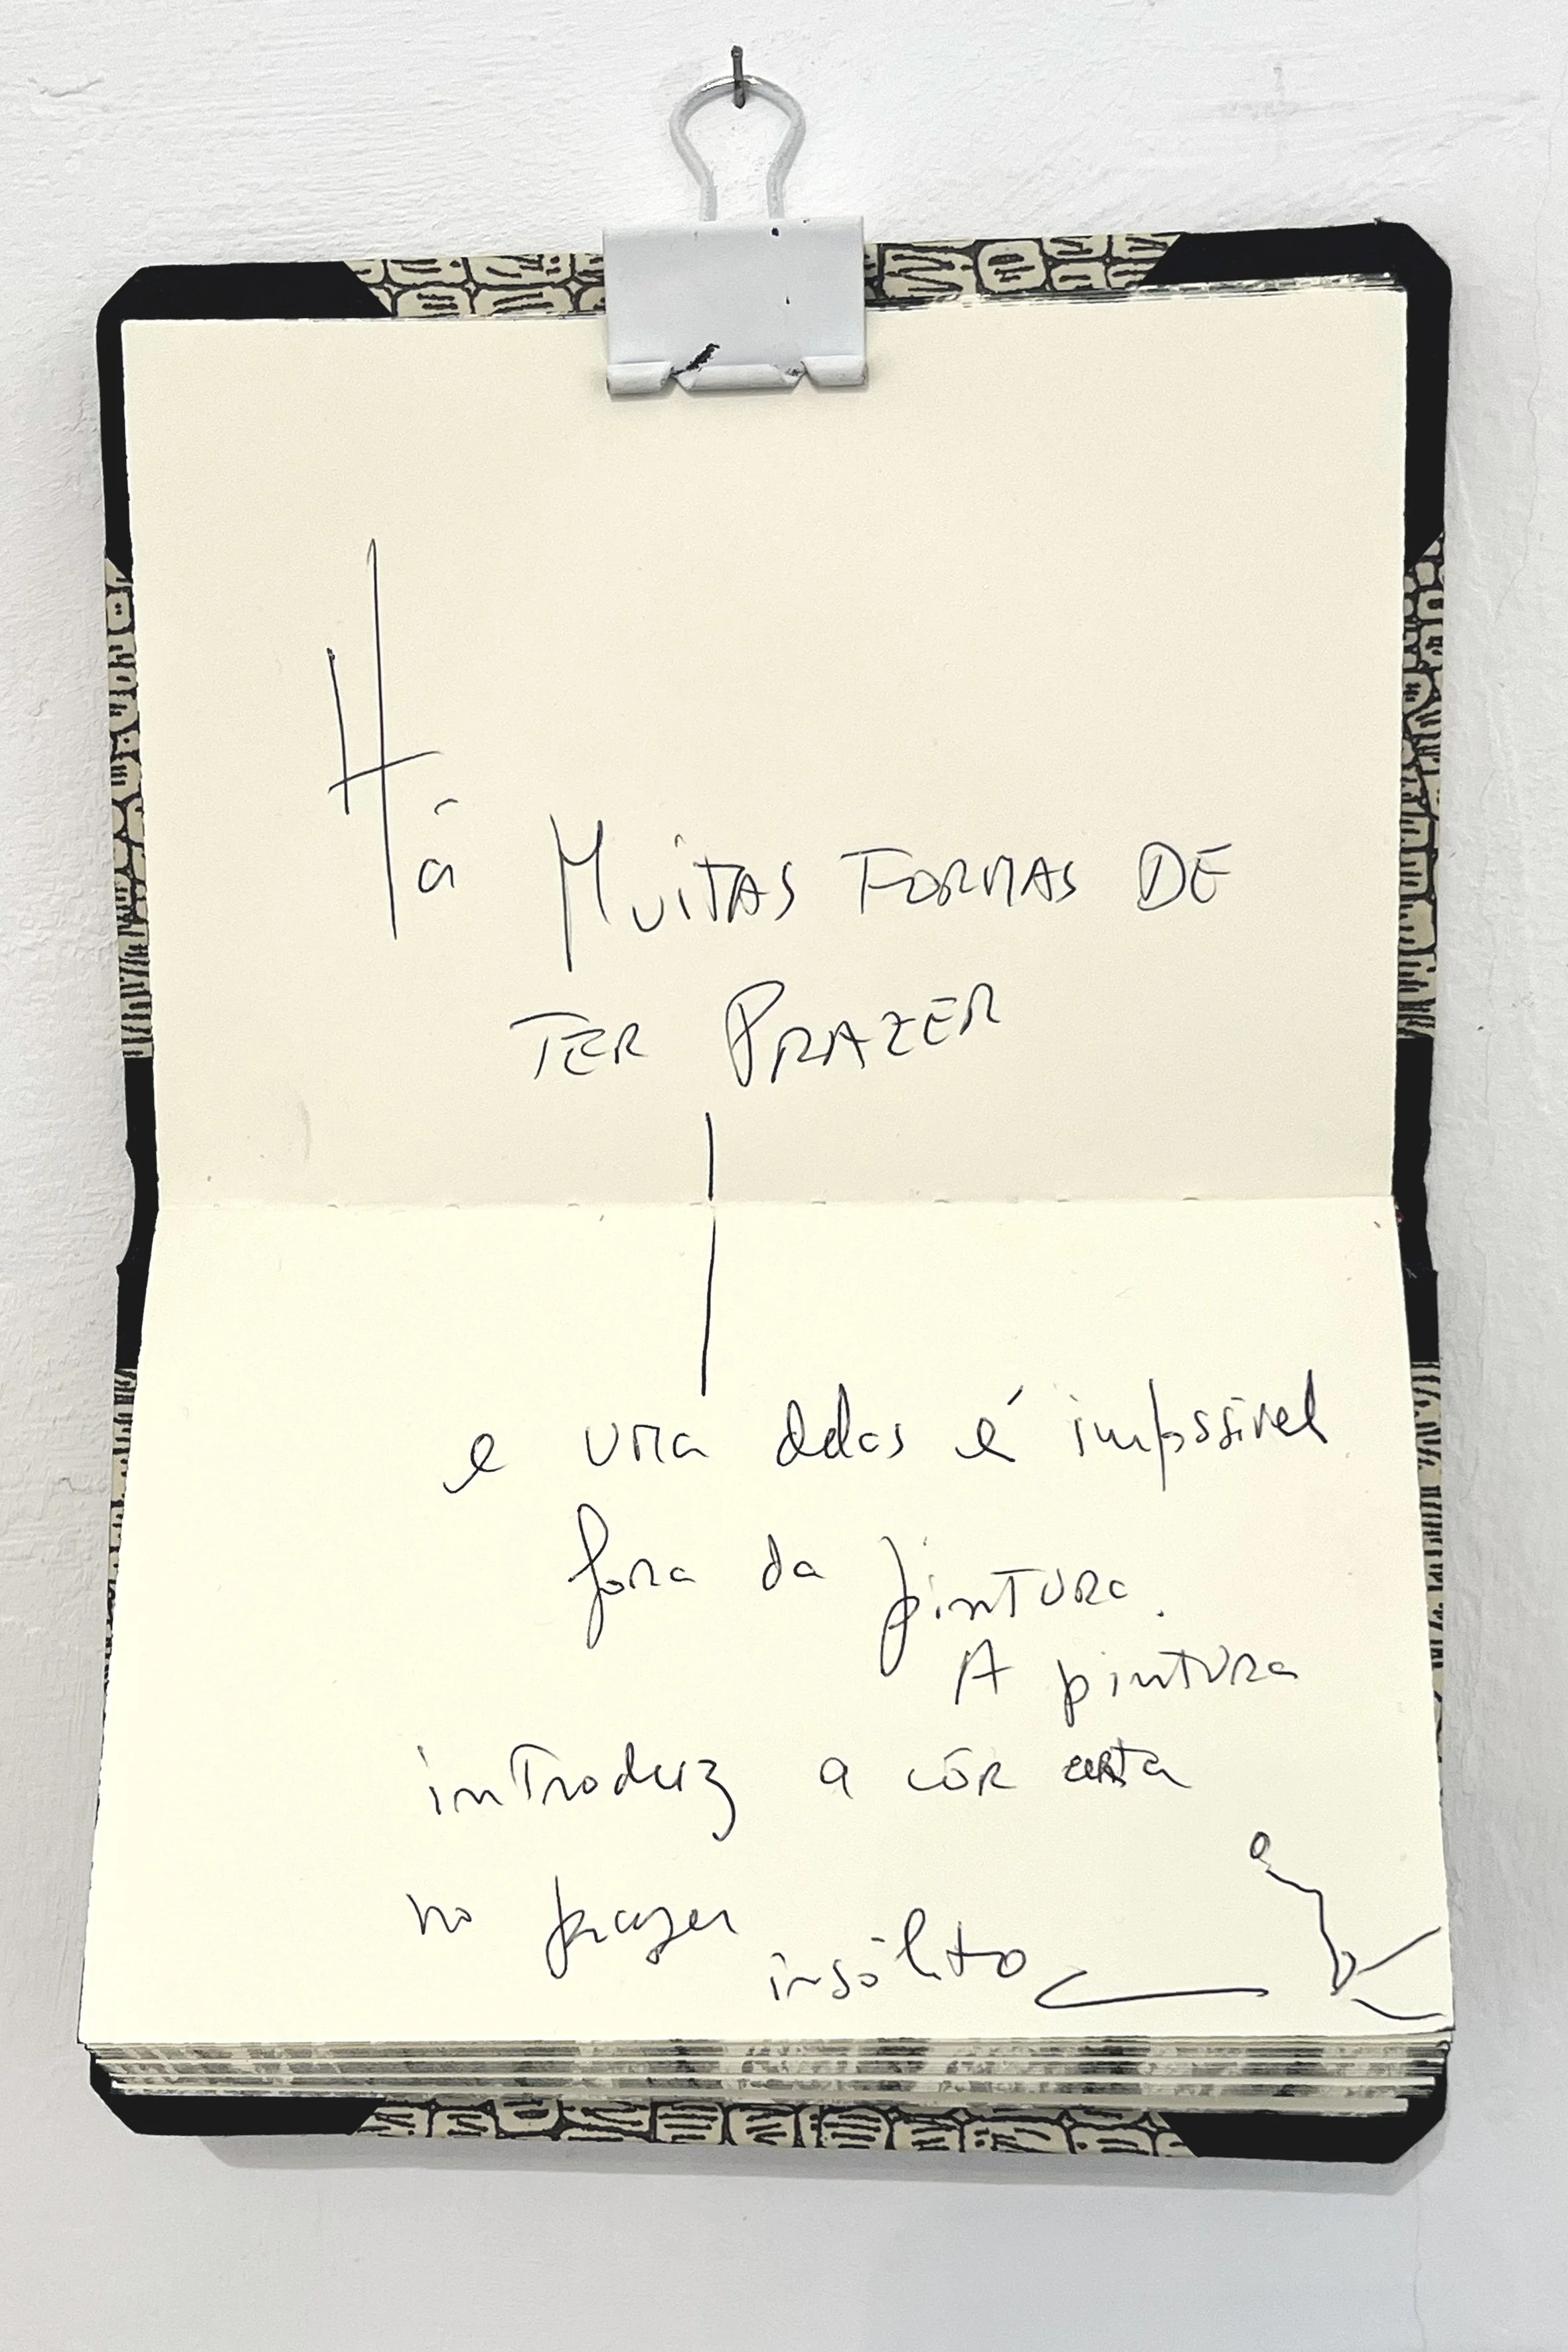 Há MUITAS FORMAS DE
TER PRAZER
e uma delas é impossivel
fora da pintura.
A pintura
introduz a côr certa
no prazer
insólito